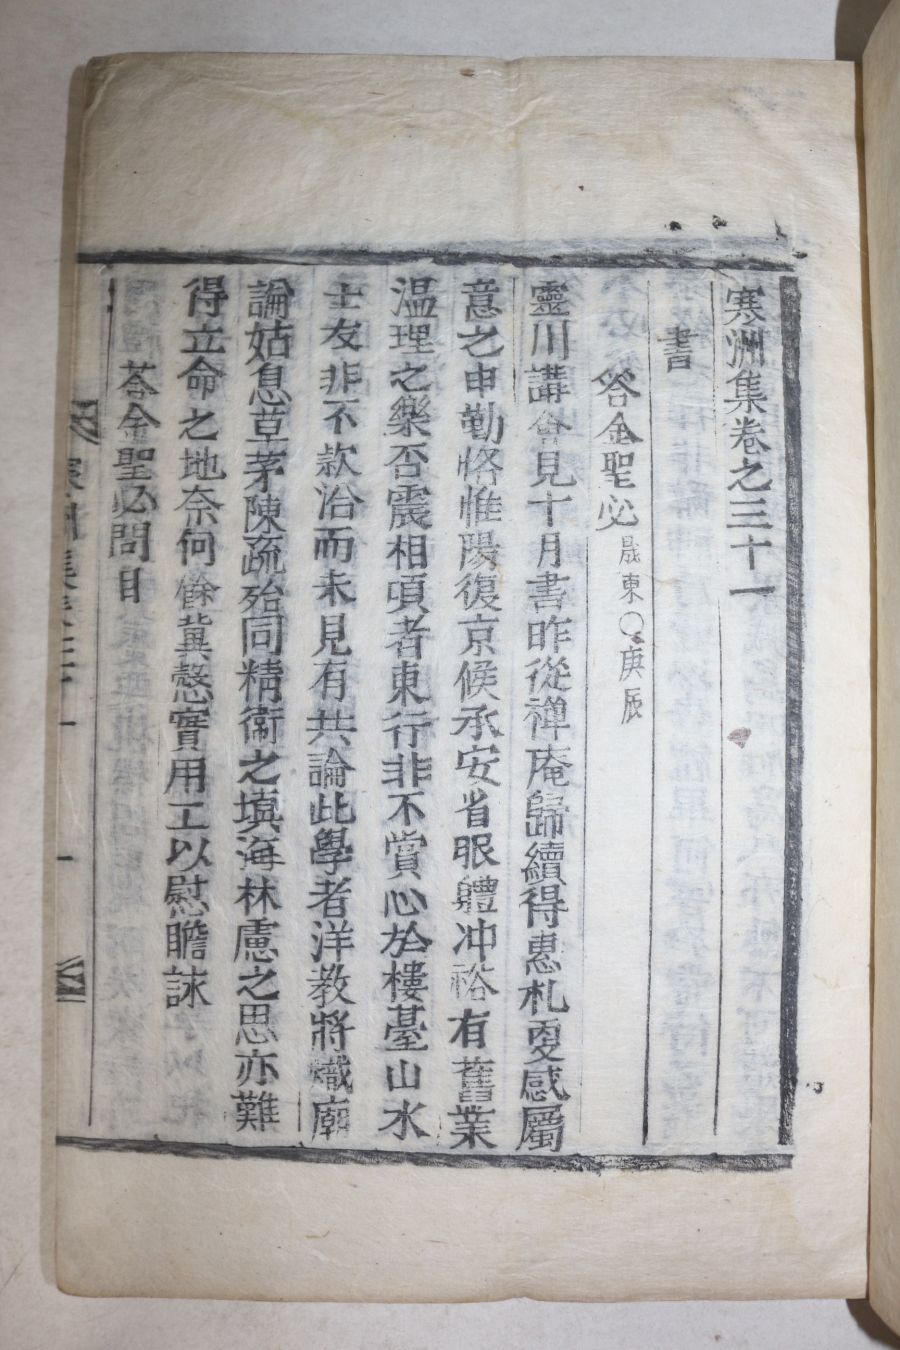 寒洲集卷之三十一
書
答金聖必晟東○庚辰
靈川講會見十月書昨從禪庵歸續得惠札更感屬
意之申勤恪惟陽復京候承安省眼軆冲裕有舊業
溫理之樂否震相頃者東行非不賞心於樓臺山水
士友非不款洽而未見有共論此學者洋教將熾廟
論姑息草茅陳疏殆同精衛之塡海林慮之思亦難
得立命之地奈何餘冀慤實用工以慰瞻誄
答金聖必問目